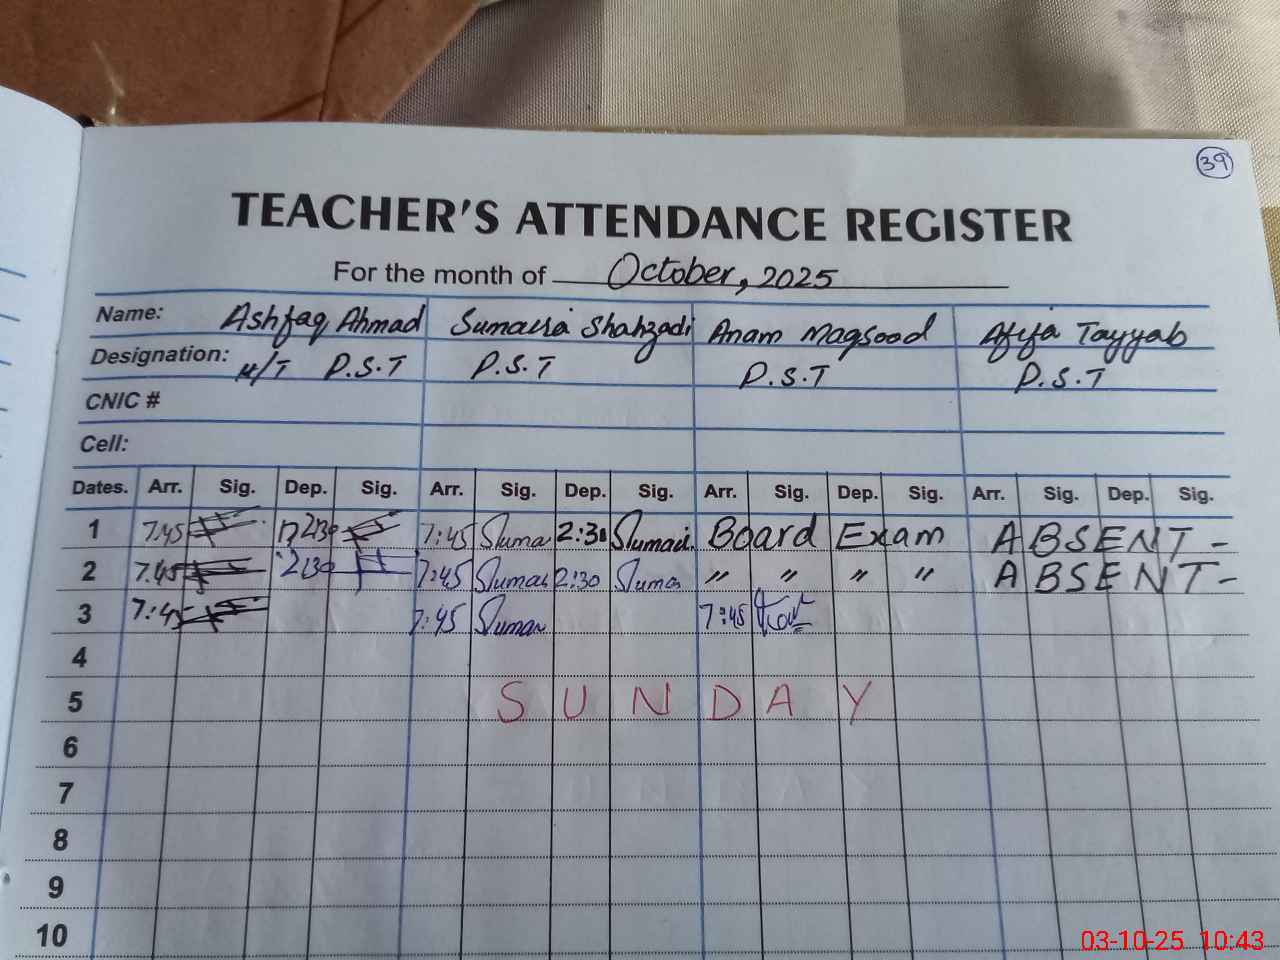 39
TEACHER'S ATTENDANCE REGISTER
For the month of October, 2025
Name: Ashfaq Ahmad Sumaira Shahzadi Anam Maqsood Afifa Tayyab
Designation: H/T P.S.T P.S.T P.S.T P.S.T
CNIC #
Cell:
Dates. Arr. Sig. Dep. Sig. Arr. Sig. Dep. Sig. Arr. Sig. Dep. Sig. Arr. Sig. Dep. Sig.
1 7:45 2:30 7:45 Suma 2:30 Sumai Board Exam ABSENT -
2 7:45 2:30 7:45 Sumai 2:30 Suma " " " " ABSENT -
3 7:45 7:45 Sumai 7:45
4
5 SUNDAY
6
7
8
9
10
03-10-25 10:43